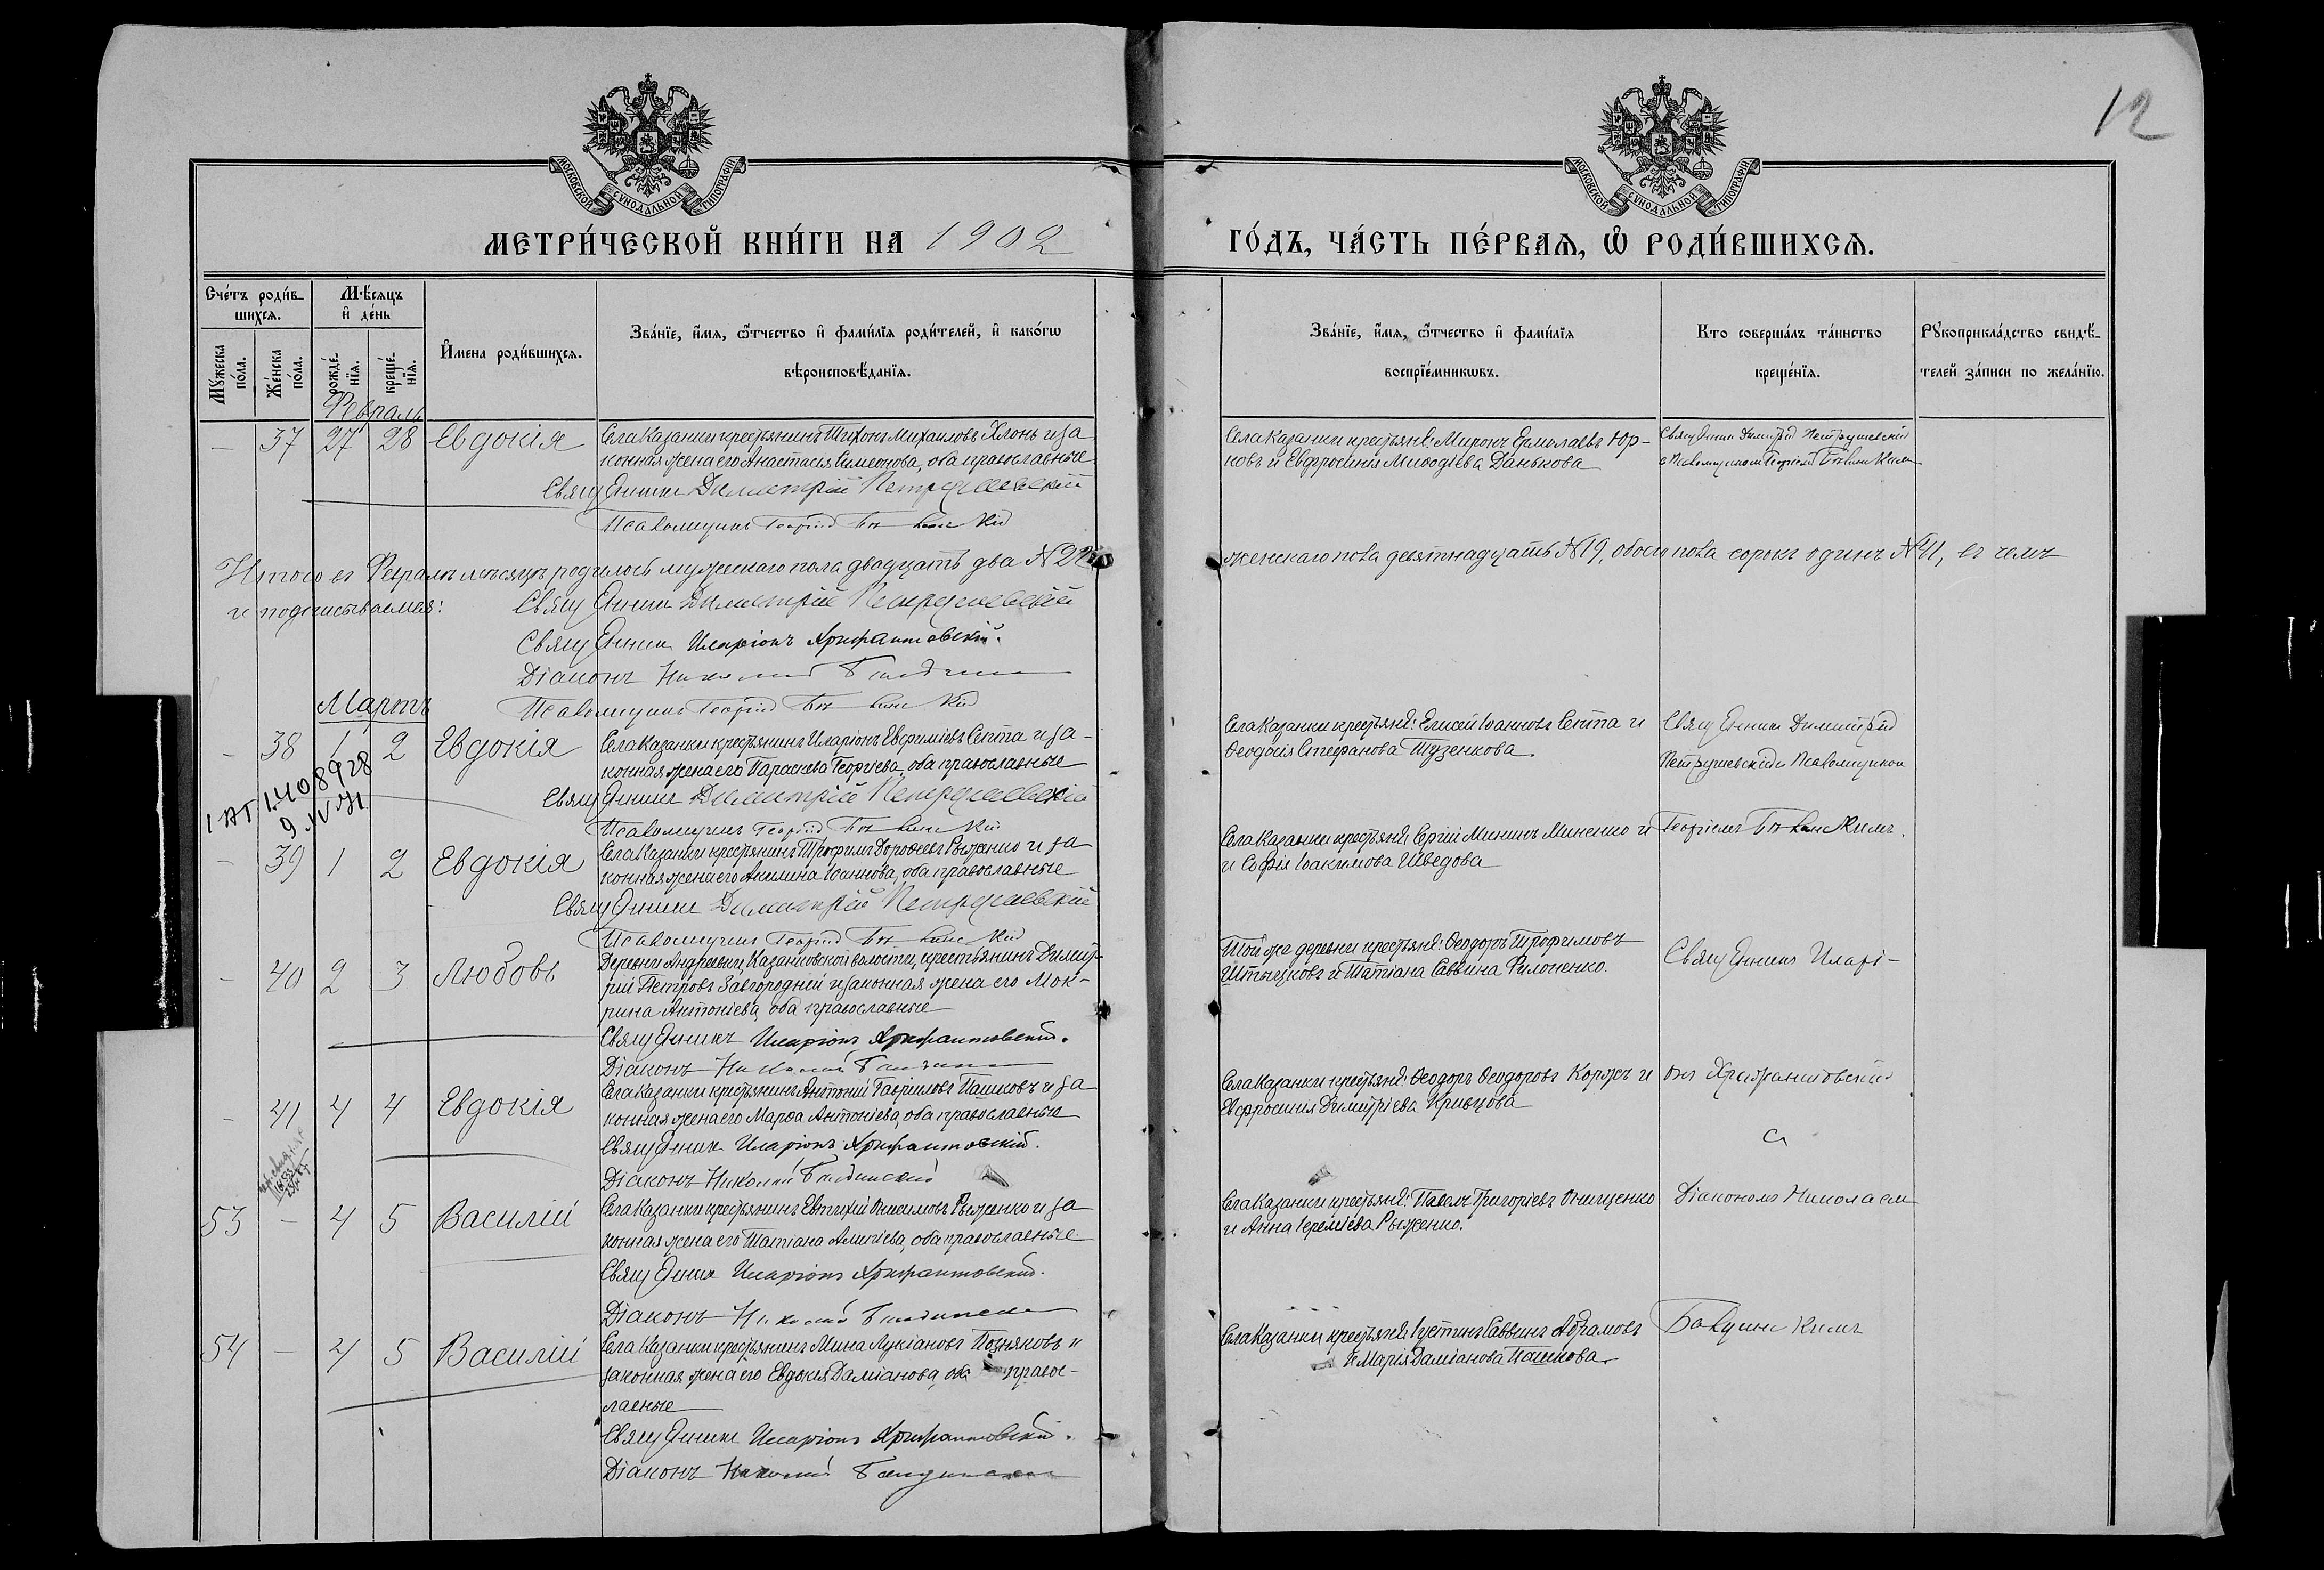 12
МОСКОВСКОЙ СѴНОДАЛЬНОЙ ТИПОГРАФІИ
МОСКОВСКОЙ СѴНОДАЛЬНОЙ ТИПОГРАФІИ
МЕТРИ́ЧЕСКОЙ КНИ́ГИ НА 1902 ГО́ДЪ, ЧА́СТЬ ПЕ́РВАѦ, Ѿ РОДИ́ВШИХСѦ.
Сче́тъ роди́в-
шихсѧ.
Мꙋ́жеска по́ла.
Же́нска по́ла.
Мѣ́сѧцъ и҆ де́нь
рожде́-нїѧ.
креще́-нїѧ.
И҆мена роди́вшихсѧ.
Зва́нїе, и҆́мѧ, ѻ҆́тчество и҆ фами́лїѧ роди́телей, и҆ како́гѡ
вѣроисповѣ́данїѧ.
Зва́нїе, и҆́мѧ, ѻ҆́тчество и҆ фами́лїѧ
воспрїе́мникѡвъ.
Кто соверша́лъ та́инство
креще́нїѧ.
Рꙋкоприкла́дство свидѣ́-
телей за́писи по жела́нїю.
Февраль
— 37 27 28 Евдокія
Села Казанки крестьянинъ Тихонъ Михаиловъ Хлонь и за
конная жена его Анастасія Симеонова, оба православные
Священникъ Димитрій Петрушевскій
Псаломщикъ Георгій
Села Казанки крестьяне: Миронъ Ермолаевъ Юр-
ковъ и Евфросинія Меѳодіева Данькова
Священникъ Димитрій Петрушевскій
с Псаломщикомъ Георгіемъ
Итого въ Февралѣ мѣсяцѣ родилось мужескаго пола двадцать два №22, женскаго пола девятнадцать №19, обоего пола сорокъ одинъ №41, въ чемъ
и подписываемся: Священникъ Димитрій Петрушевскій
Священникъ Иларіонъ Хрисанфовскій.
Діаконъ Николай
Псаломщикъ Георгій
Мартъ
— 38 1 2 Евдокія
Села Казанки крестьянинъ Иларіонъ Евфиміевъ Септа и за-
конная жена его Параскева Георгіева, оба православные
Священникъ Димитрій Петрушевскій
Псаломщикъ Георгій
Села Казанки крестьяне: Елисей Іоанновъ Септа и
Ѳеодосія Стефанова Тузенкова.
Священникъ Димитрій
Петрушевскій и Псаломщикомъ
— 39 1 2 Евдокія
Села Казанки крестьянинъ Трофимъ Дороѳеевъ Рыженко и за
конная жена его Акилина Іоаннова, оба православные
Священникъ Димитрій Петрушевскій
Псаломщикъ Георгій
Села Казанки крестьяне: Сергій Мининъ Миненко и
и Софія Іоакимова Шведова
Георгіемъ
— 40 2 3 Любовь
Деревни Андреевки, Казанковской волости, крестьянинъ Димит-
рій Петровъ Завгородній и законная жена его Мок-
рина Антоніева, оба православные
Священникъ Иларіонъ
Діаконъ Николай
Той же деревни крестьяне: Ѳеодоръ Трофимовъ
и Татіана Саввина Филоненко.
Священникъ Иларі-
— 41 4 4 Евдокія
Села Казанки крестьянинъ Антоній Гавриловъ Пашковъ и за
конная жена его Марѳа Антоніева, оба православные
Священникъ Иларіонъ
Діаконъ Николай
Села Казанки крестьяне: Ѳеодоръ Ѳеодоровъ Коржъ и
Евфросинія Димитріева Кривцова
онъ
с
53 — 4 5 Василій
Села Казанки крестьянинъ Евтихій Онисимовъ Рыженко и за
конная жена его Татіана Алексіева, оба православные
Священникъ Иларіонъ
Діаконъ Николай
Села Казанки крестьяне: Павелъ Григоріевъ Онищенко
и Анна Іереміева Рыженко.
Діакономъ Николаем
54 — 4 5 Василій
Села Казанки крестьянинъ Мина Лукіановъ Позняковъ и
законная жена его Евдокія Даміанова, оба правос-
лавные
Священникъ Иларіонъ
Діаконъ Николай
Села Казанки крестьяне: Іустинъ Саввинъ Абрамовъ
и Марія Даміанова Пашкова.